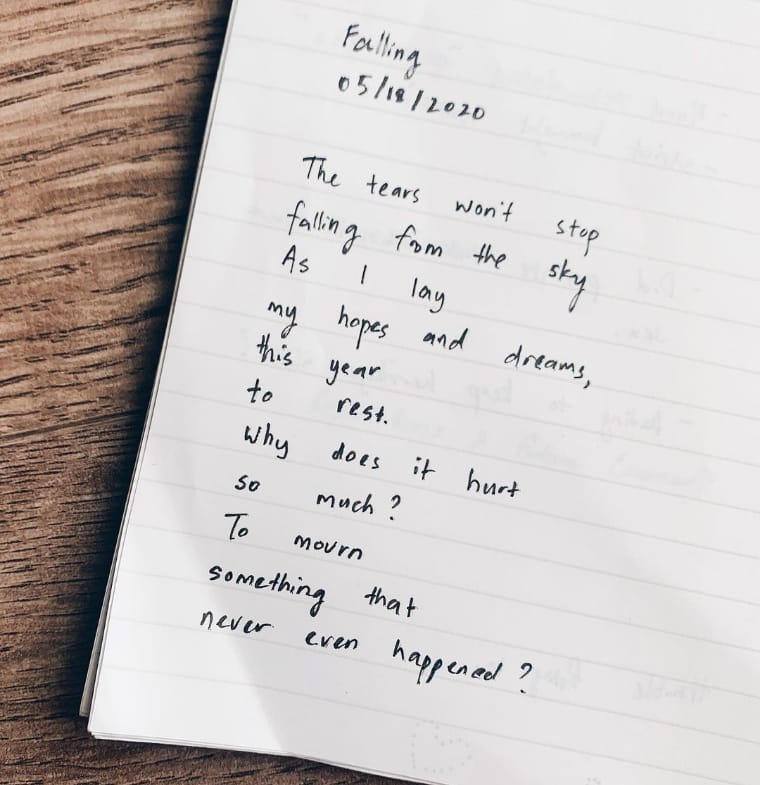 Falling
05/18/2020
The tears won't stop
falling from the sky
As I lay
my hopes and dreams,
this year
to rest.
Why does it hurt
so much?
To mourn
something that
never even happened?